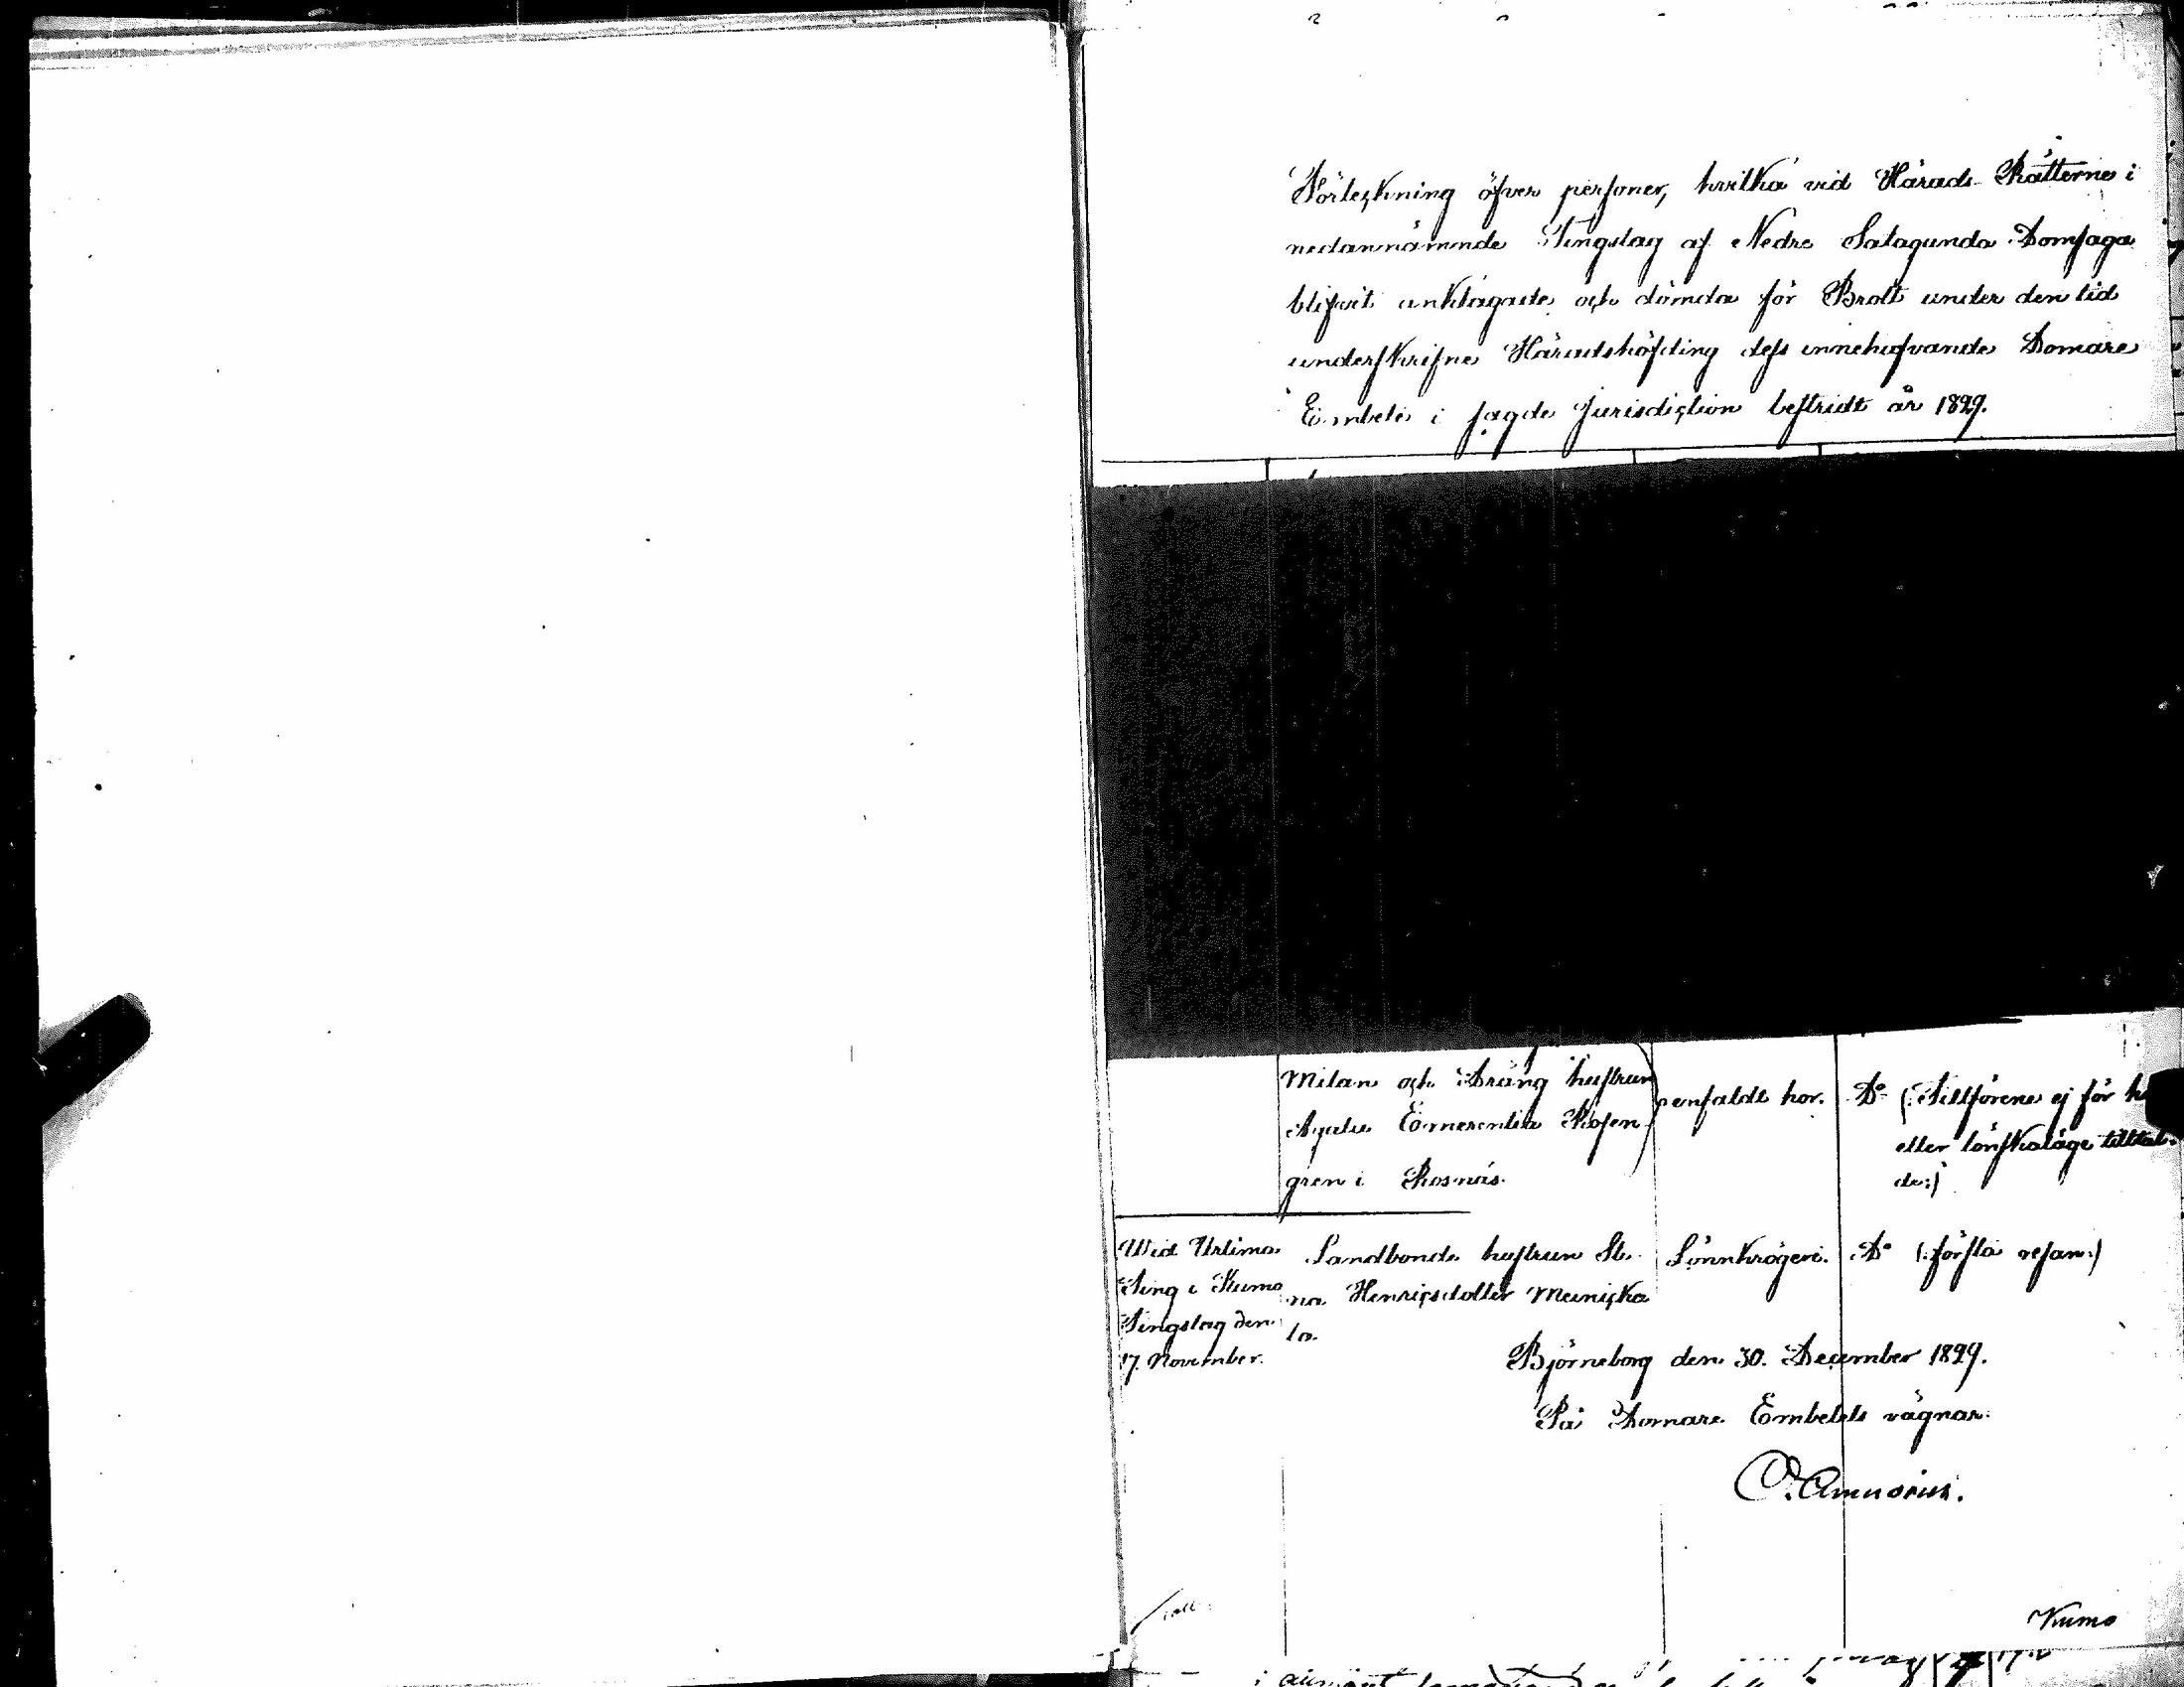 Förteckning öfver personer, hvilka vid Härads Rätterne i
nedannämnde Tingslag af Nedre Satagunda Domsaga
blifvit anklagade och dömda för Brott under den tid
underskrifne Häradshöfding dess innehafvande Domare
Embete i sagde Jurisdiction bestridt år 1829.
Milan och Dräng hustrun
Agata Emerentia Rosen
gren i Rosnäs.
enfaldt hor.
Do (:Tillförene ej för
eller lönskaläge tilltal
de:)
Wid Urtima
Ting i Kumo
Tingslag den
17. November.
Landbonde hustrun Ste
na Henricsdotter Meinicka
la.
Lönnkrögeri.
Do (:första resan:)
Björneborg den 30. December 1829.
På Domare Embetets vägnar.
Kumo